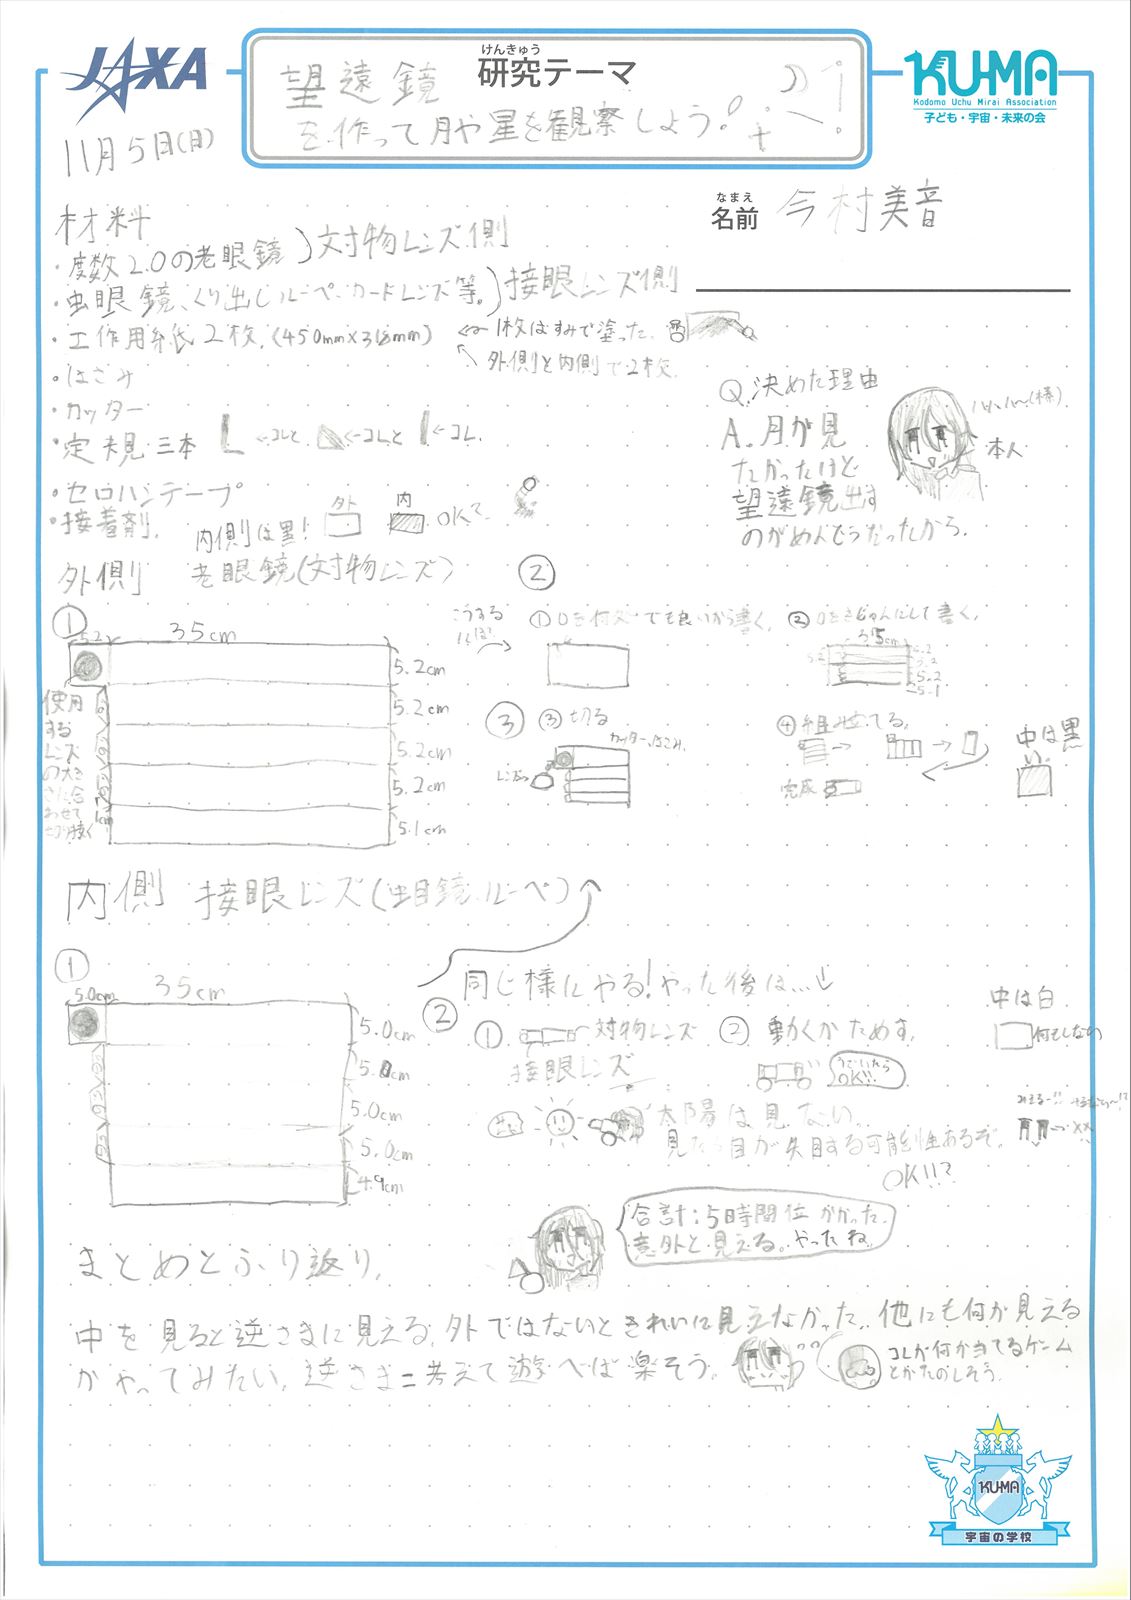 JAXA
けんきゅう
研究テーマ
望遠鏡
を作って月や星を観察しよう!
KU-MA
Kodomo Uchu Mirai Association
子ども・宇宙・未来の会
11月5日(日)
なまえ
名前 今村美音
材料
・度数2.0の老眼鏡 )対物レンズ側
・虫眼鏡、くり出しルーペ、カードレンズ等。)接眼レンズ側
・工作用紙2枚.(450mm×318mm) ← 1枚はすみで塗った.
外側と内側で2枚.
・はさみ
・カッター
・定規 三本 ←コレと ←コレと ←コレ.
・セロハンテープ
・接着剤.
内側は黒! 外 内 OK?
Q.決めた理由
A.月が見
たかったけど
望遠鏡出す
のがめんどうだったから.
本人
外側 老眼鏡(対物レンズ)
①
5.2 35cm
5.2cm
5.2cm
5.2cm
5.2cm
5.1cm
使用
する
レンズ
の大き
さに合
わせて
切り抜く
②
こうする
①0を何処でも良いから書く.
②0をきじゅんにして書く.
35cm
5.2
5.2
5.2
5.1
③
③切る
カッター、はさみ.
レンズっ
④組み立てる.
完成
中は黒
内側 接眼レンズ(虫目鏡.ルーペ)
①
5.0cm 35cm
5.0cm
5.0cm
5.0cm
5.0cm
4.9cm
②
同じ様にやる!やった後は...↓
① 対物レンズ
接眼レンズ
② 動くかためす.
うごいたら
OK!!
中は白
何もしない
太陽は見ない.
見たら目が失目する可能性あるぞ.
OK!!?
合計:5時間位かかった.
意外と見える。やったね
まとめとふり返り.
中を見ると逆さまに見える.外ではないときれいに見えなかった.他にも何か見える
かやってみたい.逆さまに考えて遊べば楽そう.
コレが何か当てるゲーム
とかたのしそう.
KU-MA
宇宙の学校